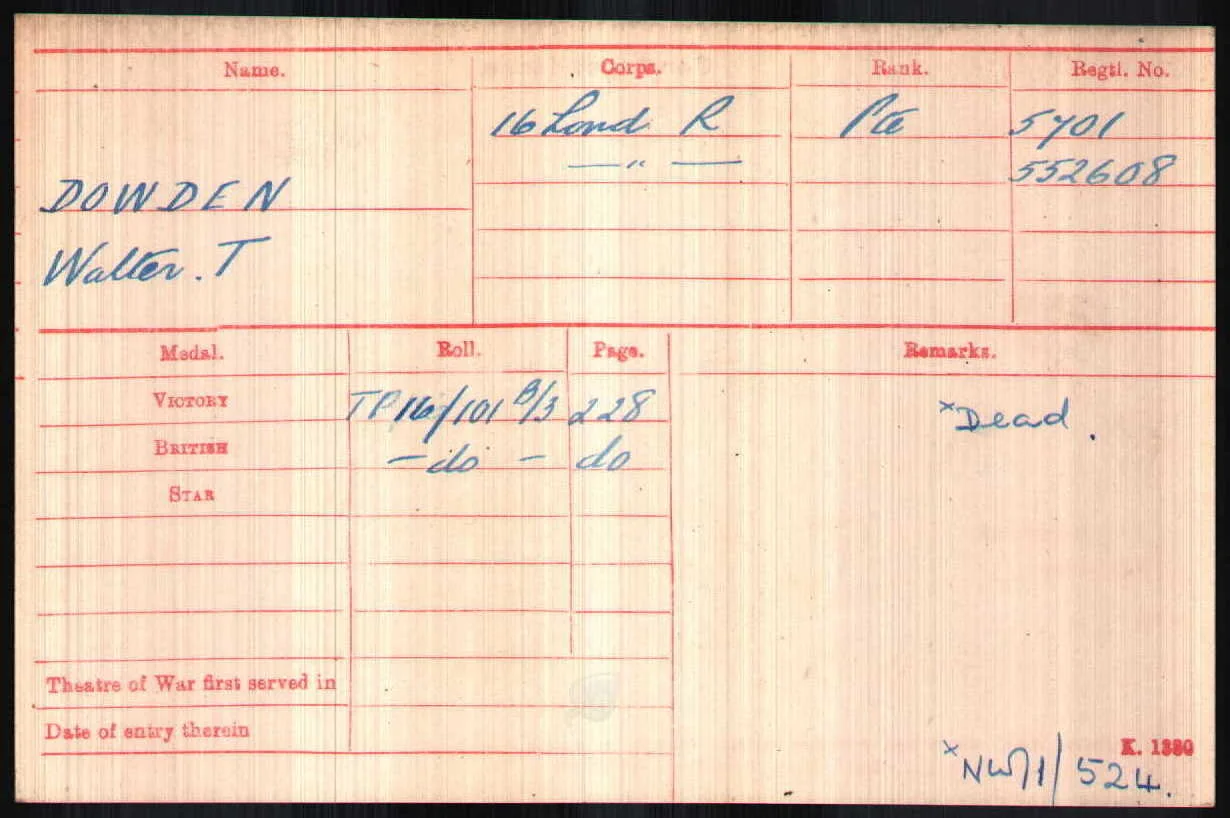 Name. Corps. Rank. Regtl. No.
16 Lond R Pte 5701
—"— 552608
DOWDEN
Walter. T
Medal. Roll. Page. Remarks.
VICTORY TP16/101 B/3 228 ×Dead.
BRITISH -do- do
STAR
Theatre of War first served in
Date of entry therein
K. 1380
×NW/1/524.